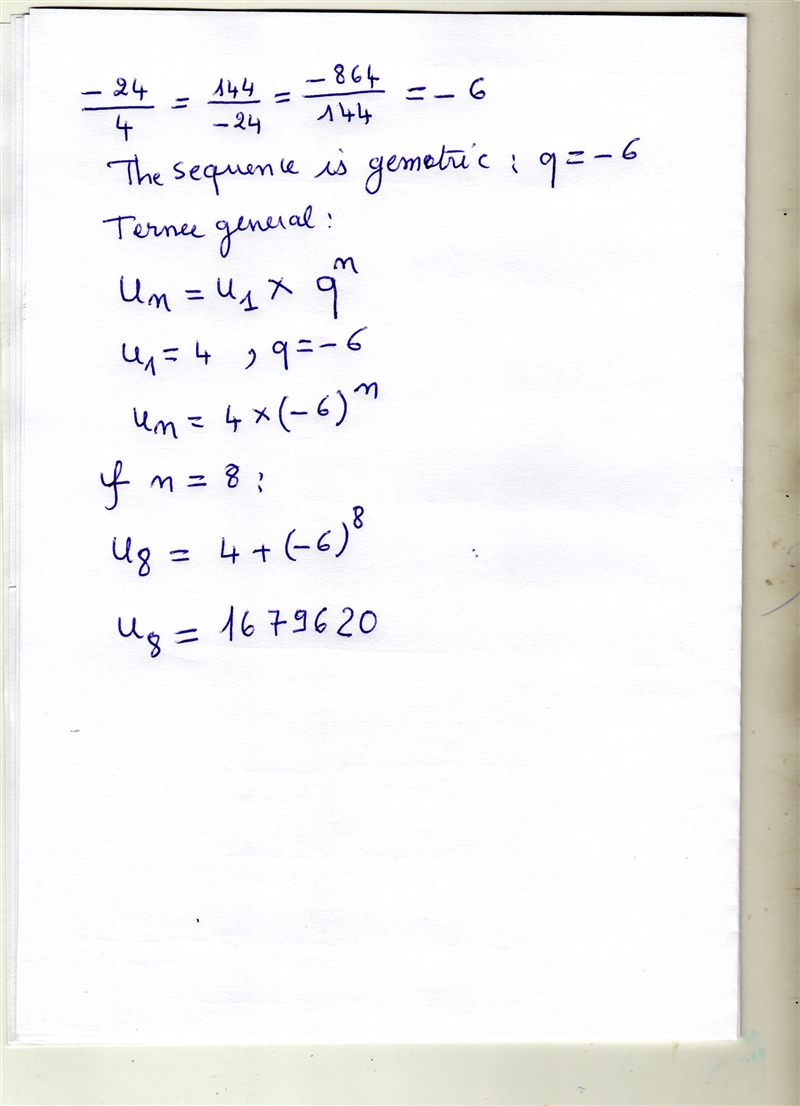 -24/4 = 144/-24 = -864/144 = -6
The sequence is gemetric : q = -6
Terme general :
Un = U1 × q^n
U1 = 4 , q = -6
Un = 4 × (-6)^n
if n = 8 :
U8 = 4 + (-6)^8
U8 = 1679620